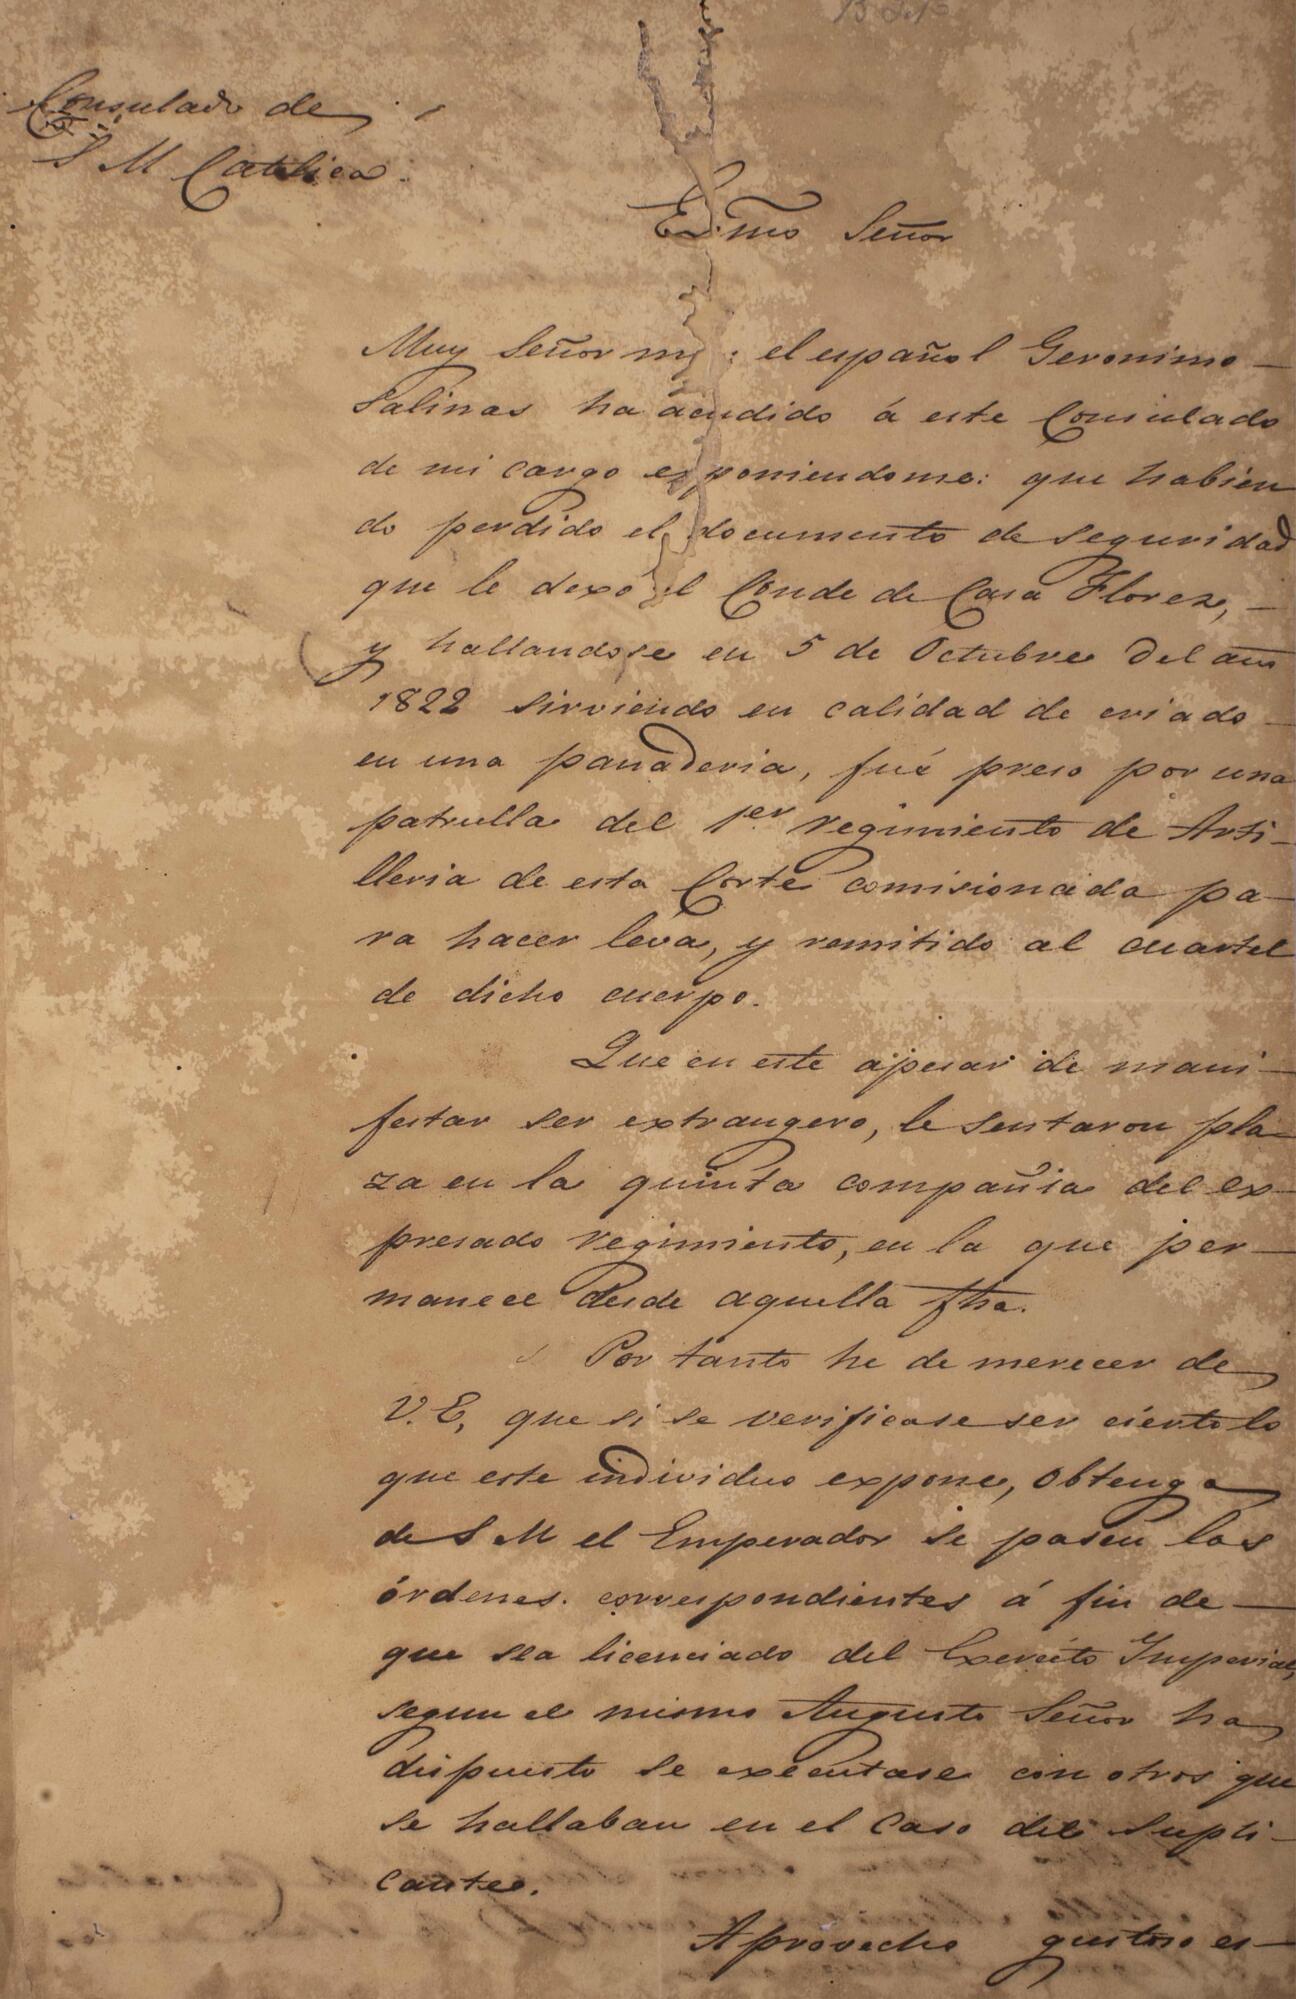 Consulado de
S M Catolica.
Exmo Señor
Muy Señor mio: el español Geronimo
Salinas ha acudido á este Consulado
de mi cargo exponiendome: que habien
do perdido el documento de seguridad
que le dexó el Conde de Casa Florez,
y hallandose en 5 de Octubre del año
1822 sirviendo en calidad de criado
en una panaderia, fué preso por una
patrulla del 1er regimiento de Arti-
lleria de esta Corte comisionada pa-
ra hacer leva, y remitido al cuartel
de dicho cuerpo.
Que en este apesar de mani-
festar ser extrangero, le sentaron pla-
za en la quinta compañia del ex-
presado regimiento, en la que per-
manece desde aquella fha.
Por tanto he de merecer de
V.E, que si se verificase ser cierto lo
que este individuo expone, obtenga
de S M el Emperador se pasen las
órdenes correspondientes á fin de
que sea licenciado del Exercito Imperial,
segun el mismo Augusto Señor ha
dispuesto se executase con otros que
se hallaban en el caso del supli-
cante.
Aprovecho gustoso es-